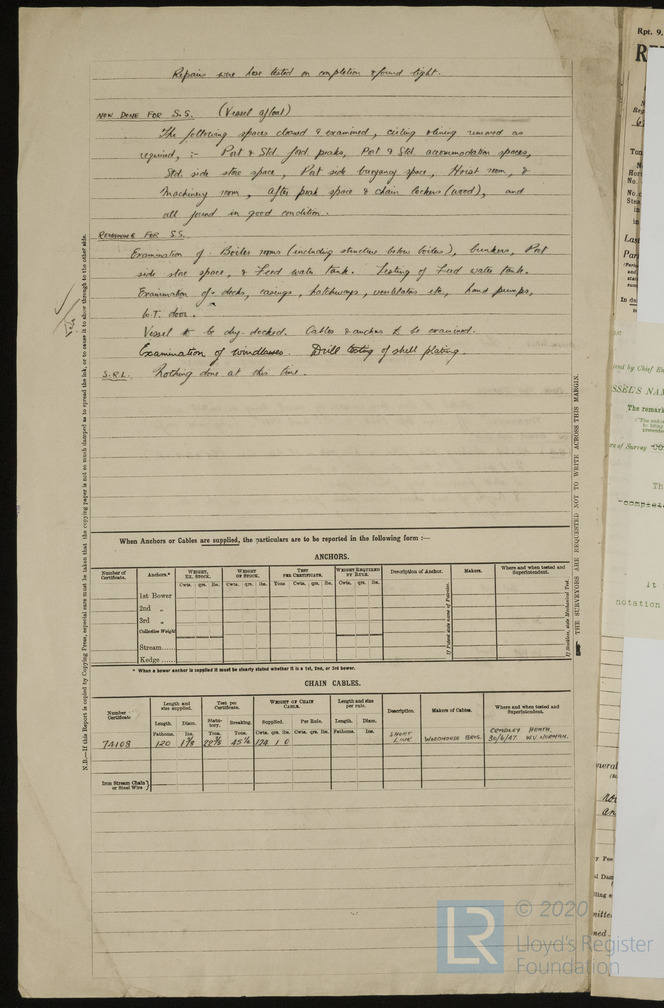 Repairs were hose tested on completion & found tight.
NOW DONE FOR S.S. (Vessel afloat)
The following spaces cleared & examined, ceiling & lining removed as
required, :- Port & Stbd. fore peaks, Port & Stbd. accommodation spaces,
Stbd. side store space, Port side buoyancy space, Hoist room, &
Machinery room, After peak space & chain lockers (used), and
all found in good condition.
FOR S.S.
Examination of Boiler rooms (including structure below boilers), bunkers, Port
side store space, & Feed water tank. Testing of Feed water tank.
Examination of decks, casings, hatchways, ventilators etc, hand pumps,
W.T. door.
Vessel to be dry-docked. Cables & anchors to be examined.
Examination of windlasses. Drill testing of shell plating.
S.R.L. Nothing done at this time.
N.B.—If this Report is copied by Copying Press, especial care must be taken that the copying paper is not so much damped as to spread the ink, or to cause it to show through to the other side.
THE SURVEYORS ARE REQUESTED NOT TO WRITE ACROSS THIS MARGIN.
When Anchors or Cables are supplied, the particulars are to be reported in the following form :—
ANCHORS.
Number of Certificate. Anchors.* WEIGHT, EX. STOCK. WEIGHT OF STOCK. TEST PER CERTIFICATE. WEIGHT REQUIRED BY RULE. Description of Anchor. Makers. Where and when tested and Superintendent.
Cwts. qrs. lbs. Cwts. qrs. lbs. Tons Cwts. qrs. lbs. Cwts. qrs. lbs.
1st Bower
2nd „
3rd „
Collective Weight
Stream......
Kedge ......
If Patent state name of Patentee.
If Stockless, state Mechanical Test.
* When a bower anchor is supplied it must be clearly stated whether it is a 1st, 2nd, or 3rd bower.
CHAIN CABLES.
Number Certificate Length and size supplied. Test per Certificate. WEIGHT OF CHAIN CABLE. Length and size per rule. Description. Makers of Cables. Where and when tested and Superintendent.
Length. Diam. Statutory. Breaking. Supplied. Per Rule. Length. Diam.
Fathoms. Ins. Tons. Tons. Cwts. qrs. lbs. Cwts. qrs. lbs. Fathoms. Ins.
74108 120 124 1 0 SHORT LINK WOODHOUSE BROS. CRADLEY HEATH, 30/6/47. W.V. NORMAN.
Iron Stream Chain or Steel Wire
Rpt. 9.
The remark
notation
© 2020
LR
Lloyd's Register
Foundation